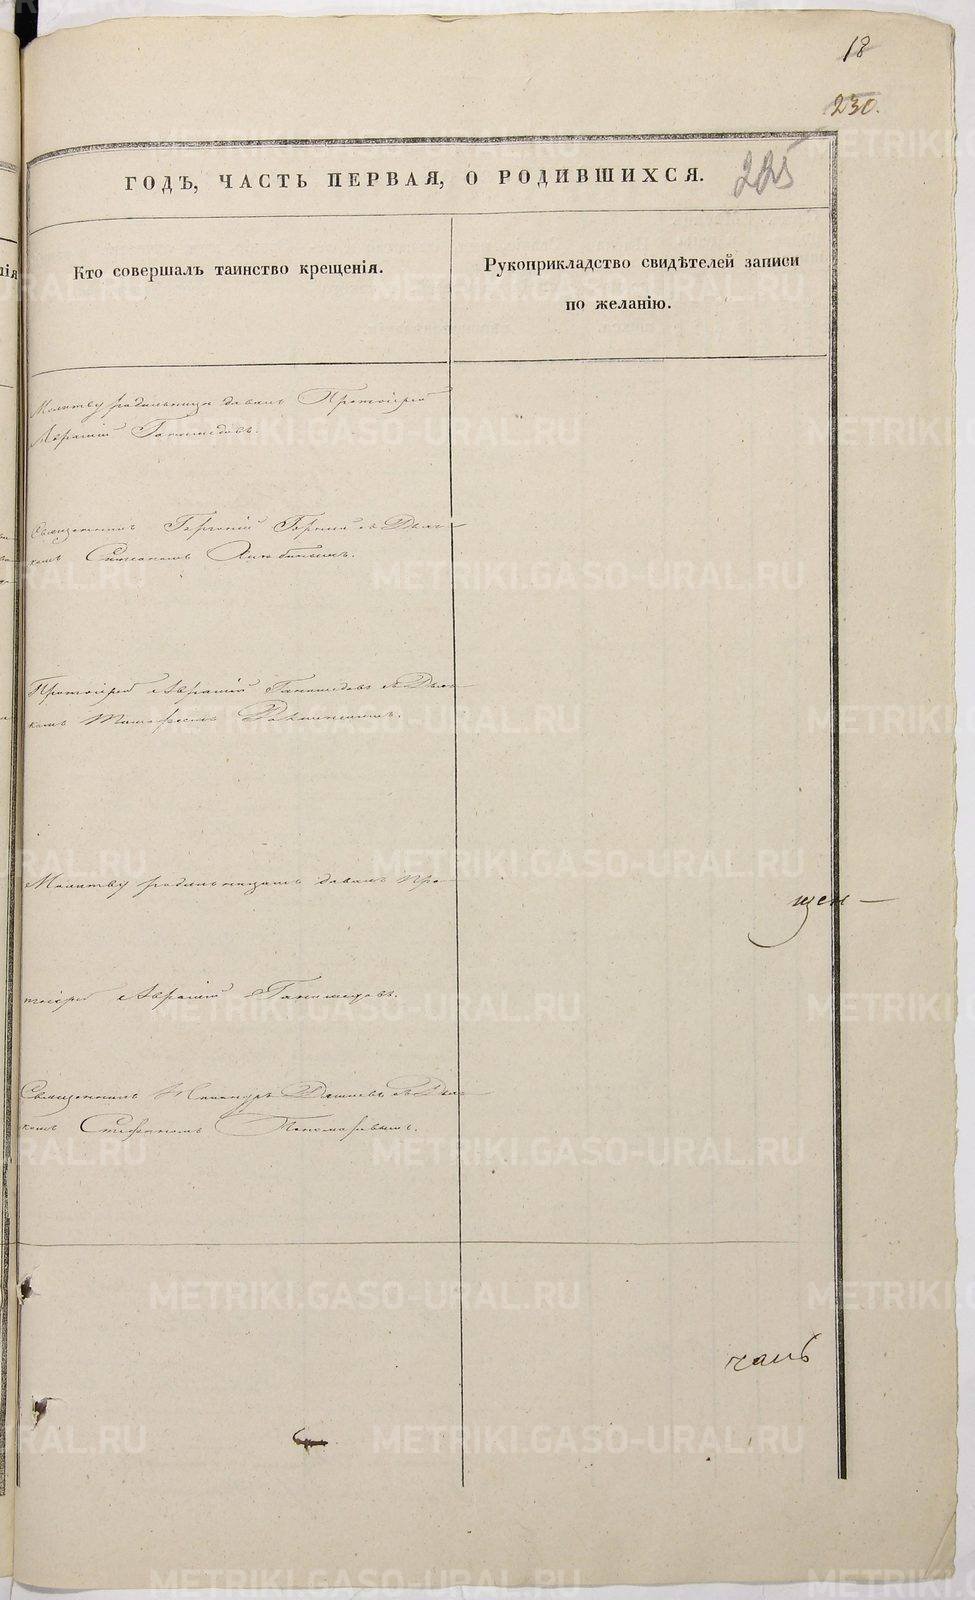 18
230.
225
ГОДЪ, ЧАСТЬ ПЕРВАЯ, О РОДИВШИХСЯ.
Кто совершалъ таинство крещенія.
Рукоприкладство свидѣтелей записи
по желанію.
Молитву родильницѣ давалъ Протоіерей
Авраамій
Священникъ Георгій съ Дьяч-
комъ Стефаномъ
Протоіерей Авраамій съ Дьяч-
комъ
Молитву родильницамъ давалъ Про-
щен-
тоіерей Авраамій
Священникъ съ Дьяч-
комъ Стефаномъ Пономаревымъ.
чамъ
METRIKI.GASO-URAL.RU